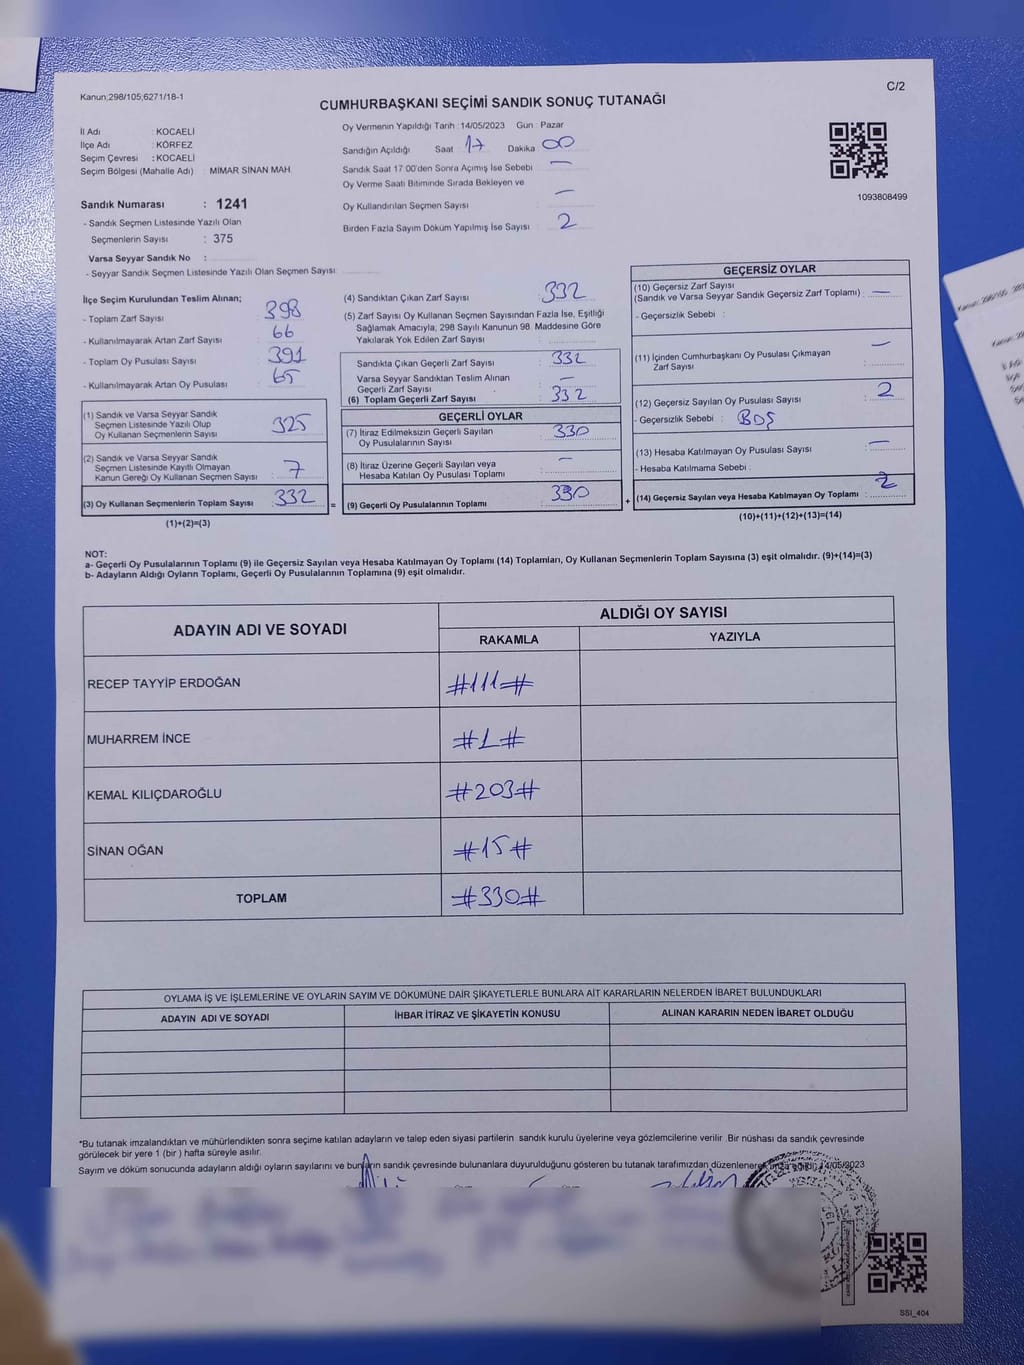 Kanun;298/105;6271/18-1
C/2
CUMHURBAŞKANI SEÇİMİ SANDIK SONUÇ TUTANAĞI
İl Adı : KOCAELİ
İlçe Adı : KÖRFEZ
Seçim Çevresi : KOCAELİ
Seçim Bölgesi (Mahalle Adı) : MİMAR SİNAN MAH
Sandık Numarası : 1241
- Sandık Seçmen Listesinde Yazılı Olan
Seçmenlerin Sayısı : 375
Varsa Seyyar Sandık No :
- Seyyar Sandık Seçmen Listesinde Yazılı Olan Seçmen Sayısı:
Oy Vermenin Yapıldığı Tarih :14/05/2023 Gün : Pazar
Sandığın Açıldığı Saat 17 Dakika 00
Sandık Saat 17.00'den Sonra Açımış İse Sebebi : —
Oy Verme Saati Bitiminde Sırada Bekleyen ve
Oy Kullandırılan Seçmen Sayısı : —
Birden Fazla Sayım Döküm Yapılmış İse Sayısı : 2
1093808499
İlçe Seçim Kurulundan Teslim Alınan;
- Toplam Zarf Sayısı : 398
- Kullanılmayarak Artan Zarf Sayısı : 66
- Toplam Oy Pusulası Sayısı : 391
- Kullanılmayarak Artan Oy Pusulası : 65
(1) Sandık ve Varsa Seyyar Sandık
Seçmen Listesinde Yazılı Olup
Oy Kullanan Seçmenlerin Sayısı : 325
(2) Sandık ve Varsa Seyyar Sandık
Seçmen Listesinde Kayıtlı Olmayan
Kanun Gereği Oy Kullanan Seçmen Sayısı : 7
(3) Oy Kullanan Seçmenlerin Toplam Sayısı : 332
(1)+(2)=(3)
(4) Sandıktan Çıkan Zarf Sayısı : 332
(5) Zarf Sayısı Oy Kullanan Seçmen Sayısından Fazla İse, Eşitliği
Sağlamak Amacıyla, 298 Sayılı Kanunun 98. Maddesine Göre
Yakılarak Yok Edilen Zarf Sayısı :
Sandıkta Çıkan Geçerli Zarf Sayısı : 332
Varsa Seyyar Sandıktan Teslim Alınan
Geçerli Zarf Sayısı : —
(6) Toplam Geçerli Zarf Sayısı : 332
GEÇERLİ OYLAR
(7) İtiraz Edilmeksizin Geçerli Sayılan
Oy Pusulalarının Sayısı : 330
(8) İtiraz Üzerine Geçerli Sayılan veya
Hesaba Katılan Oy Pusulası Toplamı : —
= (9) Geçerli Oy Pusulalarının Toplamı : 330
GEÇERSİZ OYLAR
(10) Geçersiz Zarf Sayısı
(Sandık ve Varsa Seyyar Sandık Geçersiz Zarf Toplamı) : —
- Geçersizlik Sebebi :
(11) İçinden Cumhurbaşkanı Oy Pusulası Çıkmayan
Zarf Sayısı : —
(12) Geçersiz Sayılan Oy Pusulası Sayısı : 2
- Geçersizlik Sebebi : BOŞ
(13) Hesaba Katılmayan Oy Pusulası Sayısı : —
- Hesaba Katılmama Sebebi :
+ (14) Geçersiz Sayılan veya Hesaba Katılmayan Oy Toplamı : 2
(10)+(11)+(12)+(13)=(14)
NOT:
a- Geçerli Oy Pusulalarının Toplamı (9) ile Geçersiz Sayılan veya Hesaba Katılmayan Oy Toplamı (14) Toplamları, Oy Kullanan Seçmenlerin Toplam Sayısına (3) eşit olmalıdır. (9)+(14)=(3)
b- Adayların Aldığı Oyların Toplamı, Geçerli Oy Pusulalarının Toplamına (9) eşit olmalıdır.
ADAYIN ADI VE SOYADI
ALDIĞI OY SAYISI
RAKAMLA YAZIYLA
RECEP TAYYİP ERDOĞAN #111#
MUHARREM İNCE #1#
KEMAL KILIÇDAROĞLU #203#
SİNAN OĞAN #15#
TOPLAM #330#
OYLAMA İŞ VE İŞLEMLERİNE VE OYLARIN SAYIM VE DÖKÜMÜNE DAİR ŞİKAYETLERLE BUNLARA AİT KARARLARIN NELERDEN İBARET BULUNDUKLARI
ADAYIN ADI VE SOYADI İHBAR İTİRAZ VE ŞİKAYETİN KONUSU ALINAN KARARIN NEDEN İBARET OLDUĞU
*Bu tutanak imzalandıktan ve mühürlendikten sonra seçime katılan adayların ve talep eden siyasi partilerin sandık kurulu üyelerine veya gözlemcilerine verilir .Bir nüshası da sandık çevresinde
görülecek bir yere 1 (bir ) hafta süreyle asılır.
Sayım ve döküm sonucunda adayların aldığı oyların sayılarını ve bunların sandık çevresinde bulunanlara duyurulduğunu gösteren bu tutanak tarafımızdan düzenlenerek imza edildi. 14/05/2023
SSI_404